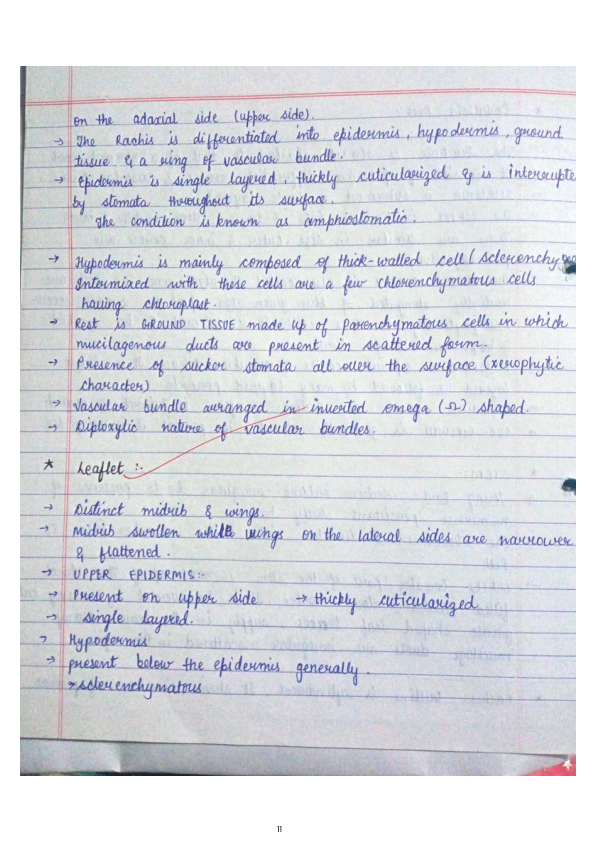 on the adaxial side (upper side).
→ The Rachis is differentiated into epidermis, hypodermis, ground
tissue & a ring of vascular bundle.
→ Epidermis is single layered thickly cuticularized & is interrupte
by stomata throughout its surface.
The condition is known as amphiostomatic.
→ Hypodermis is mainly composed of thick-walled cell (sclerenchy
Intermixed with these cells are a few chlorenchymatous cells
having chloroplast.
→ Rest is GROUND TISSUE made up of parenchymatous cells in which
mucilagenous ducts are present in scattered form.
→ Presence of sucker stomata all over the surface (xerophytic
character)
→ Vascular bundle arranged in inverted omega (Ω) shaped.
→ Diploxylic nature of vascular bundles.
* Leaflet :-
→ Distinct midrib & wings.
→ Midrib swollen while wings on the lateral sides are narrower
& flattened.
→ UPPER EPIDERMIS:-
→ Present on upper side → thickly cuticularized
→ single layered.
→ Hypodermis
→ present below the epidermis generally.
→ sclerenchymatous
11